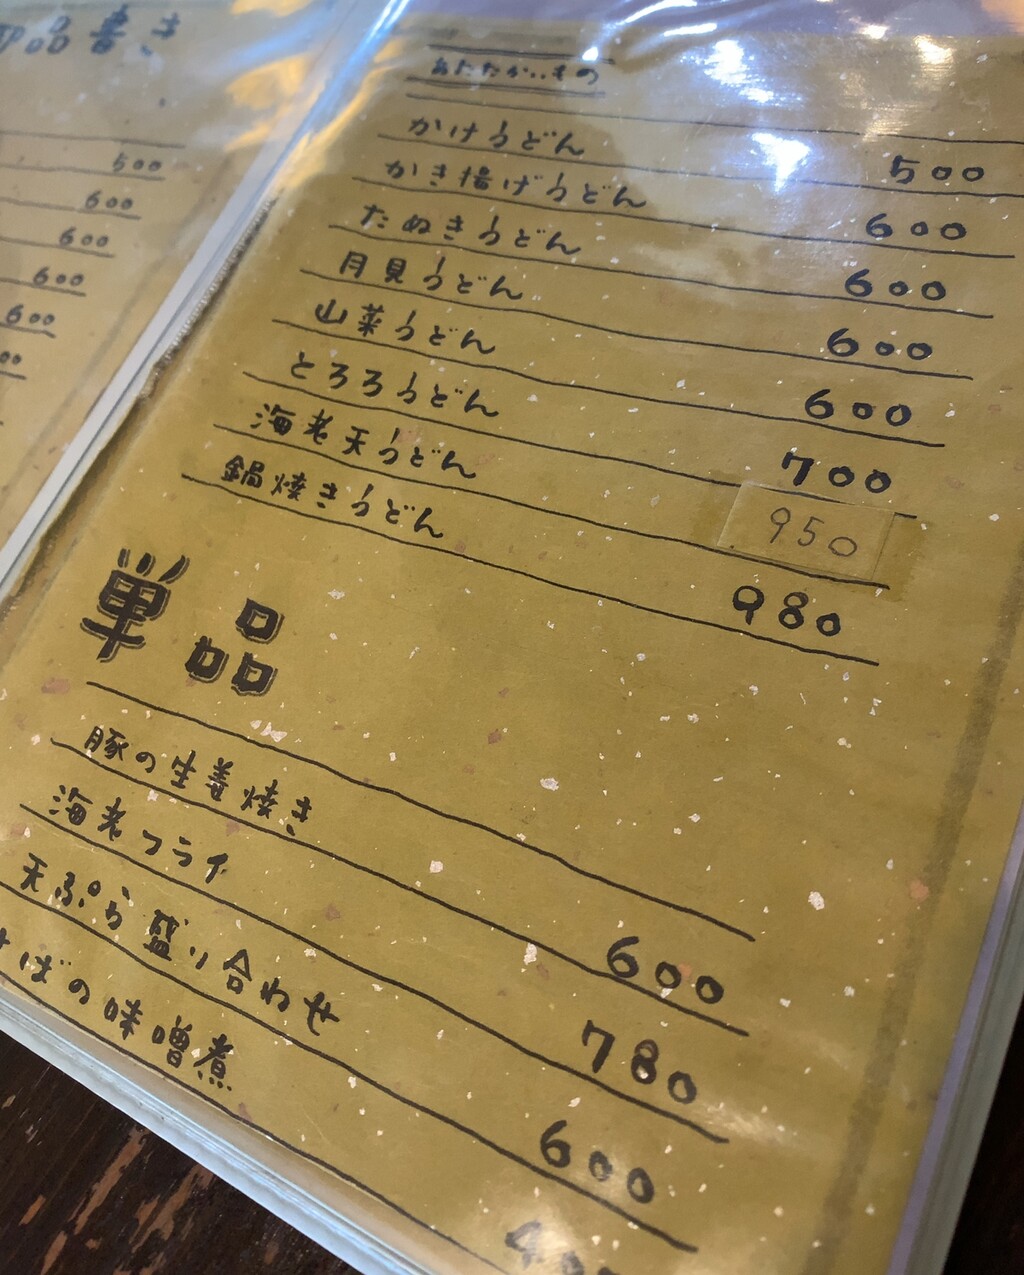 品書き
500
600
600
600
600
00
あたたかいもの
かけうどん 500
かき揚げうどん 600
たぬきうどん 600
月見うどん 600
山菜うどん 600
とろろうどん 700
海老天うどん 950
鍋焼きうどん 980
単品
豚の生姜焼き 600
海老フライ 780
天ぷら盛り合わせ 600
さばの味噌煮